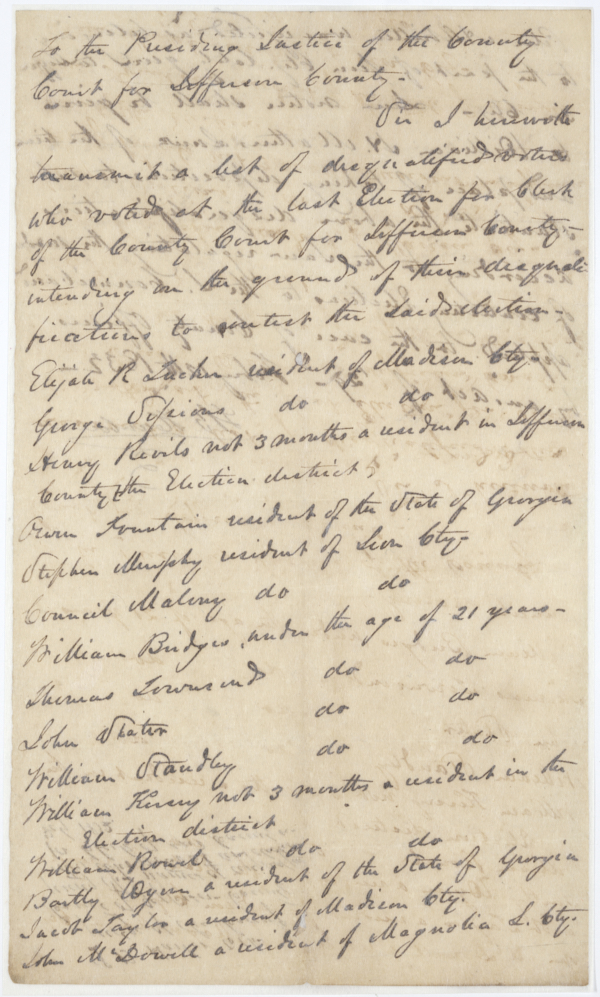 To the Presiding Justice of the County
Court for Jefferson County -
Sir I herewith
transmit a list of disqualified voters
who voted at the last Election for Clerk
of the County Court for Jefferson County -
intending on the grounds of their disquali
fications to contest the said election -
Elijah R resident of Madison Cty -
George Sessions do do
Henry Revils not 3 months a resident in Jefferson
County the Election district,
Owen Fountain resident of the State of Georgia
Stephen Murphy resident of Leon Cty -
Council Malony do do
William Bridges, under the age of 21 years -
Thomas Townsend do do
John do do
William Standley do do
William not 3 months a resident in the
Election district
William do do
Bartly a resident of the State of Georgia
Jacob Taylor a resident of Madison Cty.
John McDowell a resident of Magnolia L. Cty.